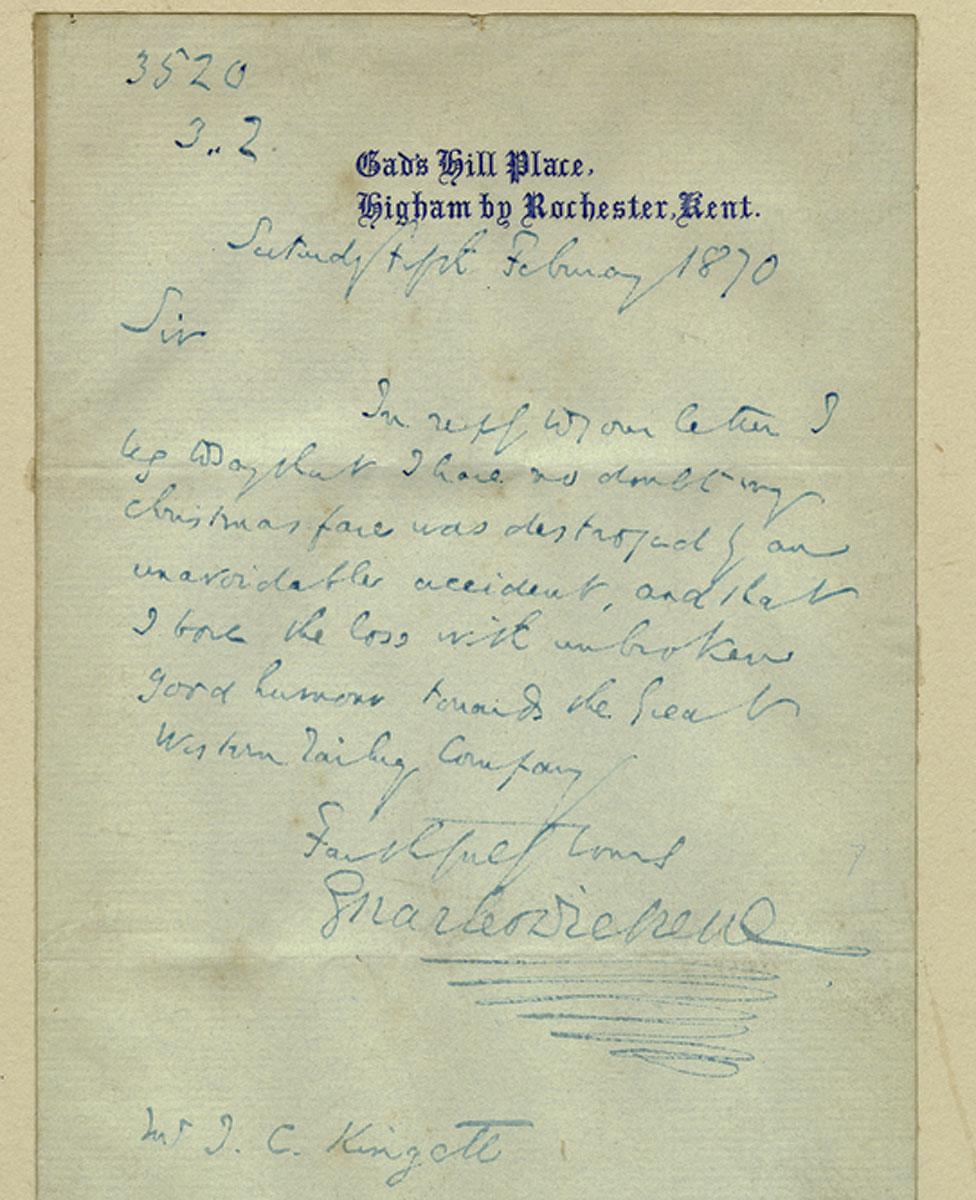 3520
3.. 2.
Gad's Hill Place,
Higham by Rochester, Kent.
Saturday Fifth February 1870
Sir
In reply to your letter I
beg to say that I have no doubt my
Christmas fare was destroyed by an
unavoidable accident, and that
I bore the loss with unbroken
good humour towards the Great
Western Railway Company
Faithfully Yours
Charles Dickens
Mr J. C. Kingett